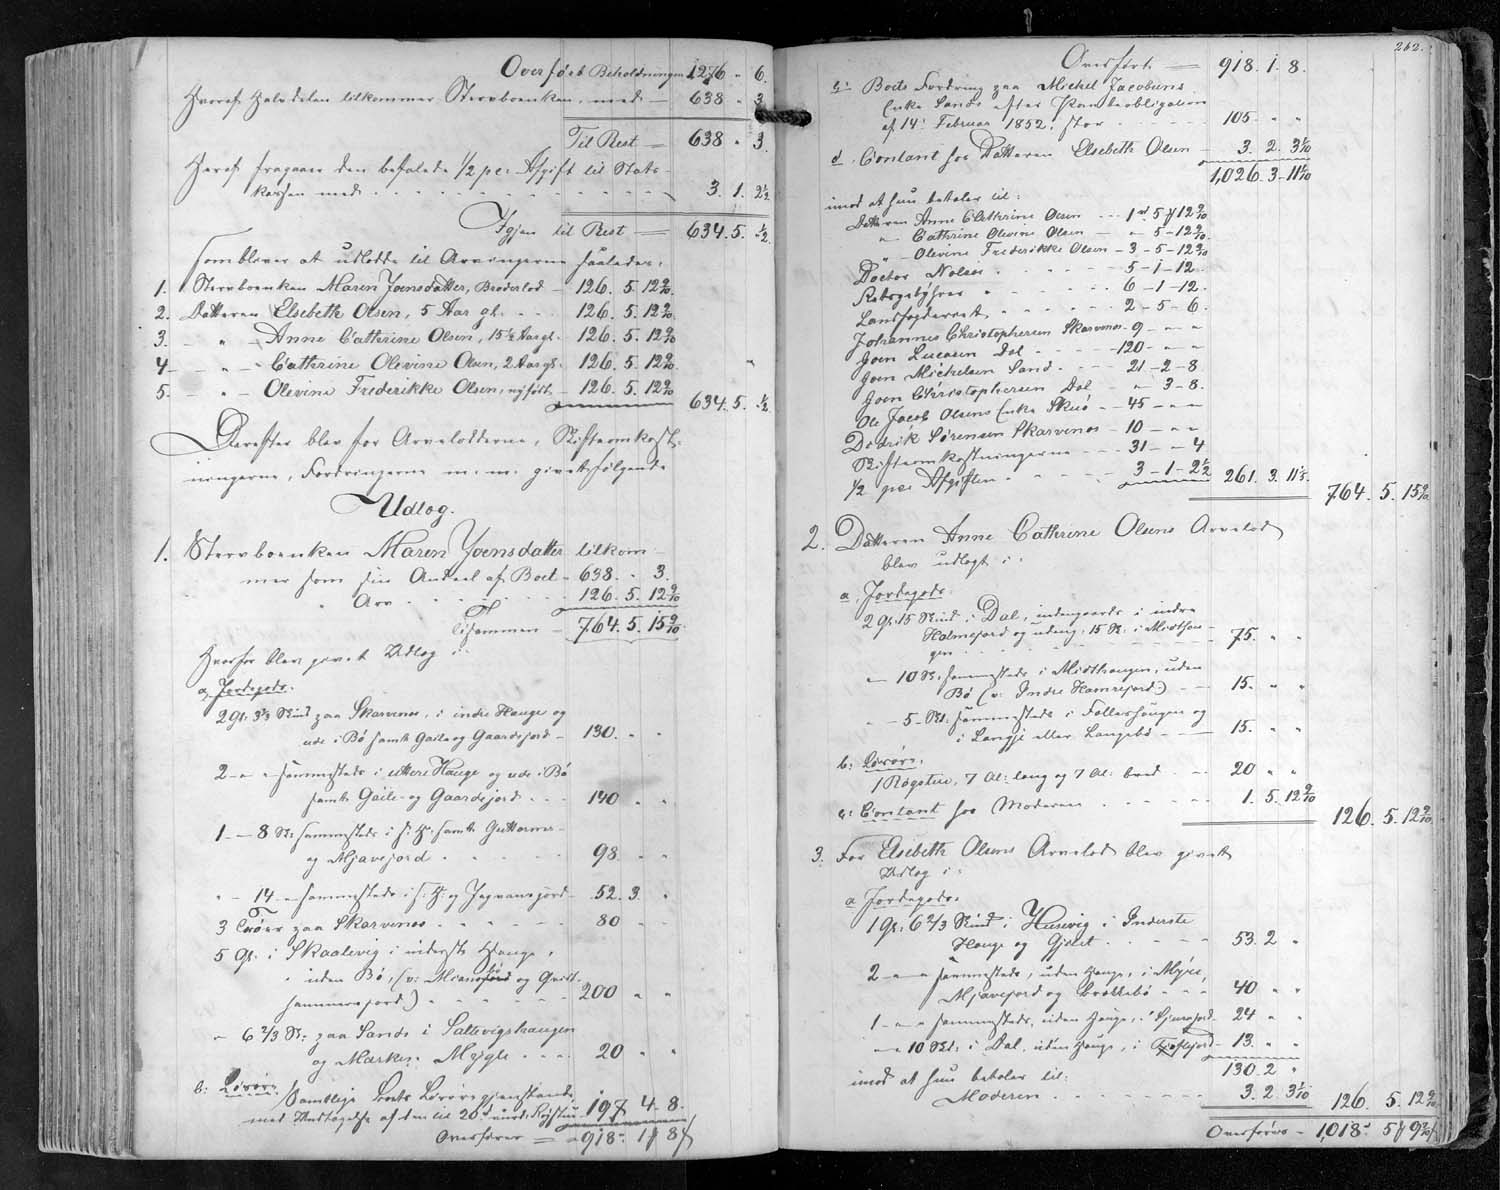 Overført Beholdningen 1276 " 6.
Hvoraf Halvdelen tilkommer Stervboenken, med — 638 " 3
Til Rest — 638 " 3.
Heraf fragaaer den befalede 1/2 pCt Afgift til Stats-
kassen med 3. 1. 2 1/2
Igjen til Rest — 634. 5. 1/2
som bliver at udlodde til Arvingerne saaledes:
1. Stervboenken Maren Joensdatter, Broderlod — 126. 5. 12 9/10
2. Datteren Elsebeth Olsen, 5 Aar gl. 126. 5. 12 9/10
3. — " — Anne Cathrine Olsen, 15 1/2 Aar gl. 126. 5. 12 9/10
4 — " — Cathrine Olevine Olsen, 2 Aar gl. 126. 5. 12 9/10
5. — " — Olevine Frederikke Olsen, nyfødt — 126. 5. 12 9/10
634. 5. 1/2
Derefter blev for Arvelodderne, Skifteomkost-
ningerne, Fordringerne m. m. givet følgende
Udlog.
1. Stervboenken Maren Joensdatter tilkom-
mer som sin Andeel af Boet — 638. " 3.
" Arv 126. 5. 12 9/10
tilsammen — 764. 5. 15 9/10
Hvorfor blev givet Udlog i:
a, Jordegods:
2 Gl. 3 1/3 Skind paa Skarvenes, i indre Hauge og
ude i Bø samt Gaile og Gaardejord — 130. " "
2 — " — sammesteds i uttere Hauge og ude i Bø
samt Gaile- og Gaardejord 140 " "
1 — 8 Sk: sammesteds i s: H: samt Guttorms-
og Mjavejord 98 " "
" — 14 — sammesteds i s: H: og Jegvansjord — 52. 3. "
3 Trøer paa Skarvenes 80 " "
5 Gl. i Skaalevig i inderste Hauge,
" uden Bø, (v: Miansbø og Qvit-
hammersjord) 200 " "
" 6 2/3 Sk: paa Sands i Saltevigshaugen
og Marken: Mygle 20 " "
b: Løsøre:
Samtlige Boets Løsøregjenstande
med Undtagelse af den til 20 rd vurd: Røgstue — 197 4. 8.
Overføres — 918 rd 1 ƒ 8 ʃ
262.
Overført — 918. 1. 8.
c: Boets Fordring paa Michel Jacobsens
Enke Sands efter Panteobligation
af 14: Februar 1852, stor 105 " "
d. Contant hos Datteren Elsebeth Olsen — 3. 2. 3 1/10
1,026. 3 — 11 1/10
imod at hun betaler til:
Datteren Anne Cathrine Olsen — 1 rd 5 ƒ 12 9/10
" — Cathrine Olevine Olsen — " — 5 — 12 9/10
" — Olevine Frederikke Olsen — 3 — 5 — 12 9/10
Doctor Nolsøe 5 — 1 — 12
Retsgebyhrer 6 — 1 — 12.
Landfogderiet 2 — 5 — 6.
Johannes Christophersen Skarvenes — 9 — " — "
Joen Lucasen Dal — 120 — " — "
Joen Michelsen Sand 21 — 2 — 8
Joen Christophersen Dal " 3 — 8.
Ole Jacob Olsens Enke Skuø — 45 — " — "
Didrik Sørensen Skarvenes — 10 — " — "
Skifteomkostningerne 31 — " — 4
1/2 pCt Afgiften 3 — 1 — 2 1/2 261. 3. 11 1/5
764. 5. 15 9/10
2. Datteren Anne Cathrine Olsens Arvelod
blev udlagt i:
a, Jordegods:
2 Gl. 15 Skind i Dal, indengaards i indre
Halmejord og udeng: 15 Sk: i Midthau-
gen 75. " "
" — 10 Sk: sammesteds i Midthaugen, uden
Bø (v: Indre Hamrejord) 15. " "
" — 5 — Sk: sammesteds i Follershaugen og
i Langje eller Langebø — 15. " "
b: Løsøre:
1 Røgstue, 7 Al: lang og 7 Al: bred 20 " "
c: Contant hos Moderen 1. 5. 12 9/10
126. 5. 12 9/10
3. For Elsebeth Olsens Arvelod blev givet
Udlog i:
a Jordegods:
1 Gl: 6 2/3 Skind i Husevig i Inderste
Hauge og Gjerdet 53. 2 "
2 — " — " sammesteds, uden Hauge, i Myre,
Mjavejord og Brekkebø 40 " "
1 — " — " sammesteds, uden Hauge, i Gjerejord — 24 " "
" — 10 Sk: i Dal, uden Hauge, i Toftejord — 13. " "
130. 2 "
imod at hun betaler til:
Moderen 3. 2. 3 1/10 126. 5. 12 9/10
Overføres — 1,018 rd 5 ƒ 9 7/10 ʃ